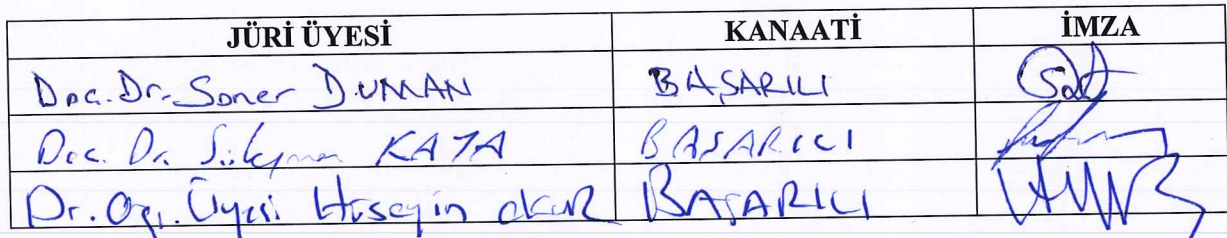 JÜRİ ÜYESİ KANAATİ İMZA
Doç. Dr. Soner DUMAN BAŞARILI
Doç. Dr. Süleyman KAYA BAŞARILI
Dr. Öğr. Üyesi Hüseyin OKUR BAŞARILI